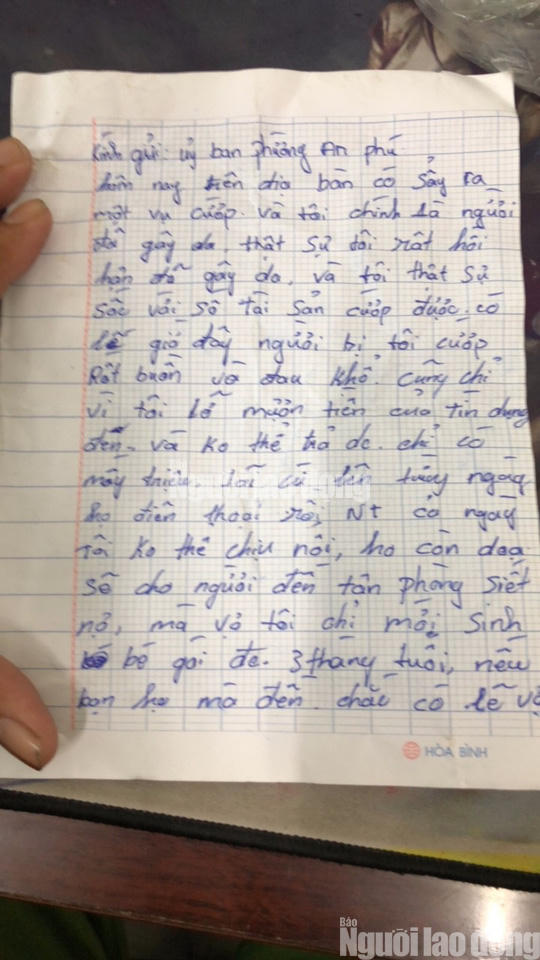 Kính gửi: uỷ ban phường An phú
hôm nay trên địa bàn có sảy ra
một vụ cướp. và tôi chính là người
đã gây da. thật sự tôi rất hối
hận đã gây da, và tôi thật sự
sốc với số tài sản cướp được. có
lẽ giờ đây người bị tôi cướp
Rất buồn và đau khổ. cũng chỉ
vì tôi lỡ mượn tiền của tín dụng
đen. và ko thể trả dc. chỉ có
mấy triệu lãi cứ lên từng ngày
họ điện thoại rồi, NT cả ngày
tôi ko thể chịu nổi, họ còn doạ
sẽ cho người đến tận phòng siết
nợ, mà vợ tôi chỉ mới sinh
bé gái đc. 3 tháng tuổi, nếu
bọn họ mà đến. chắc có lẽ vợ
HÒA BÌNH
Báo
Người lao động